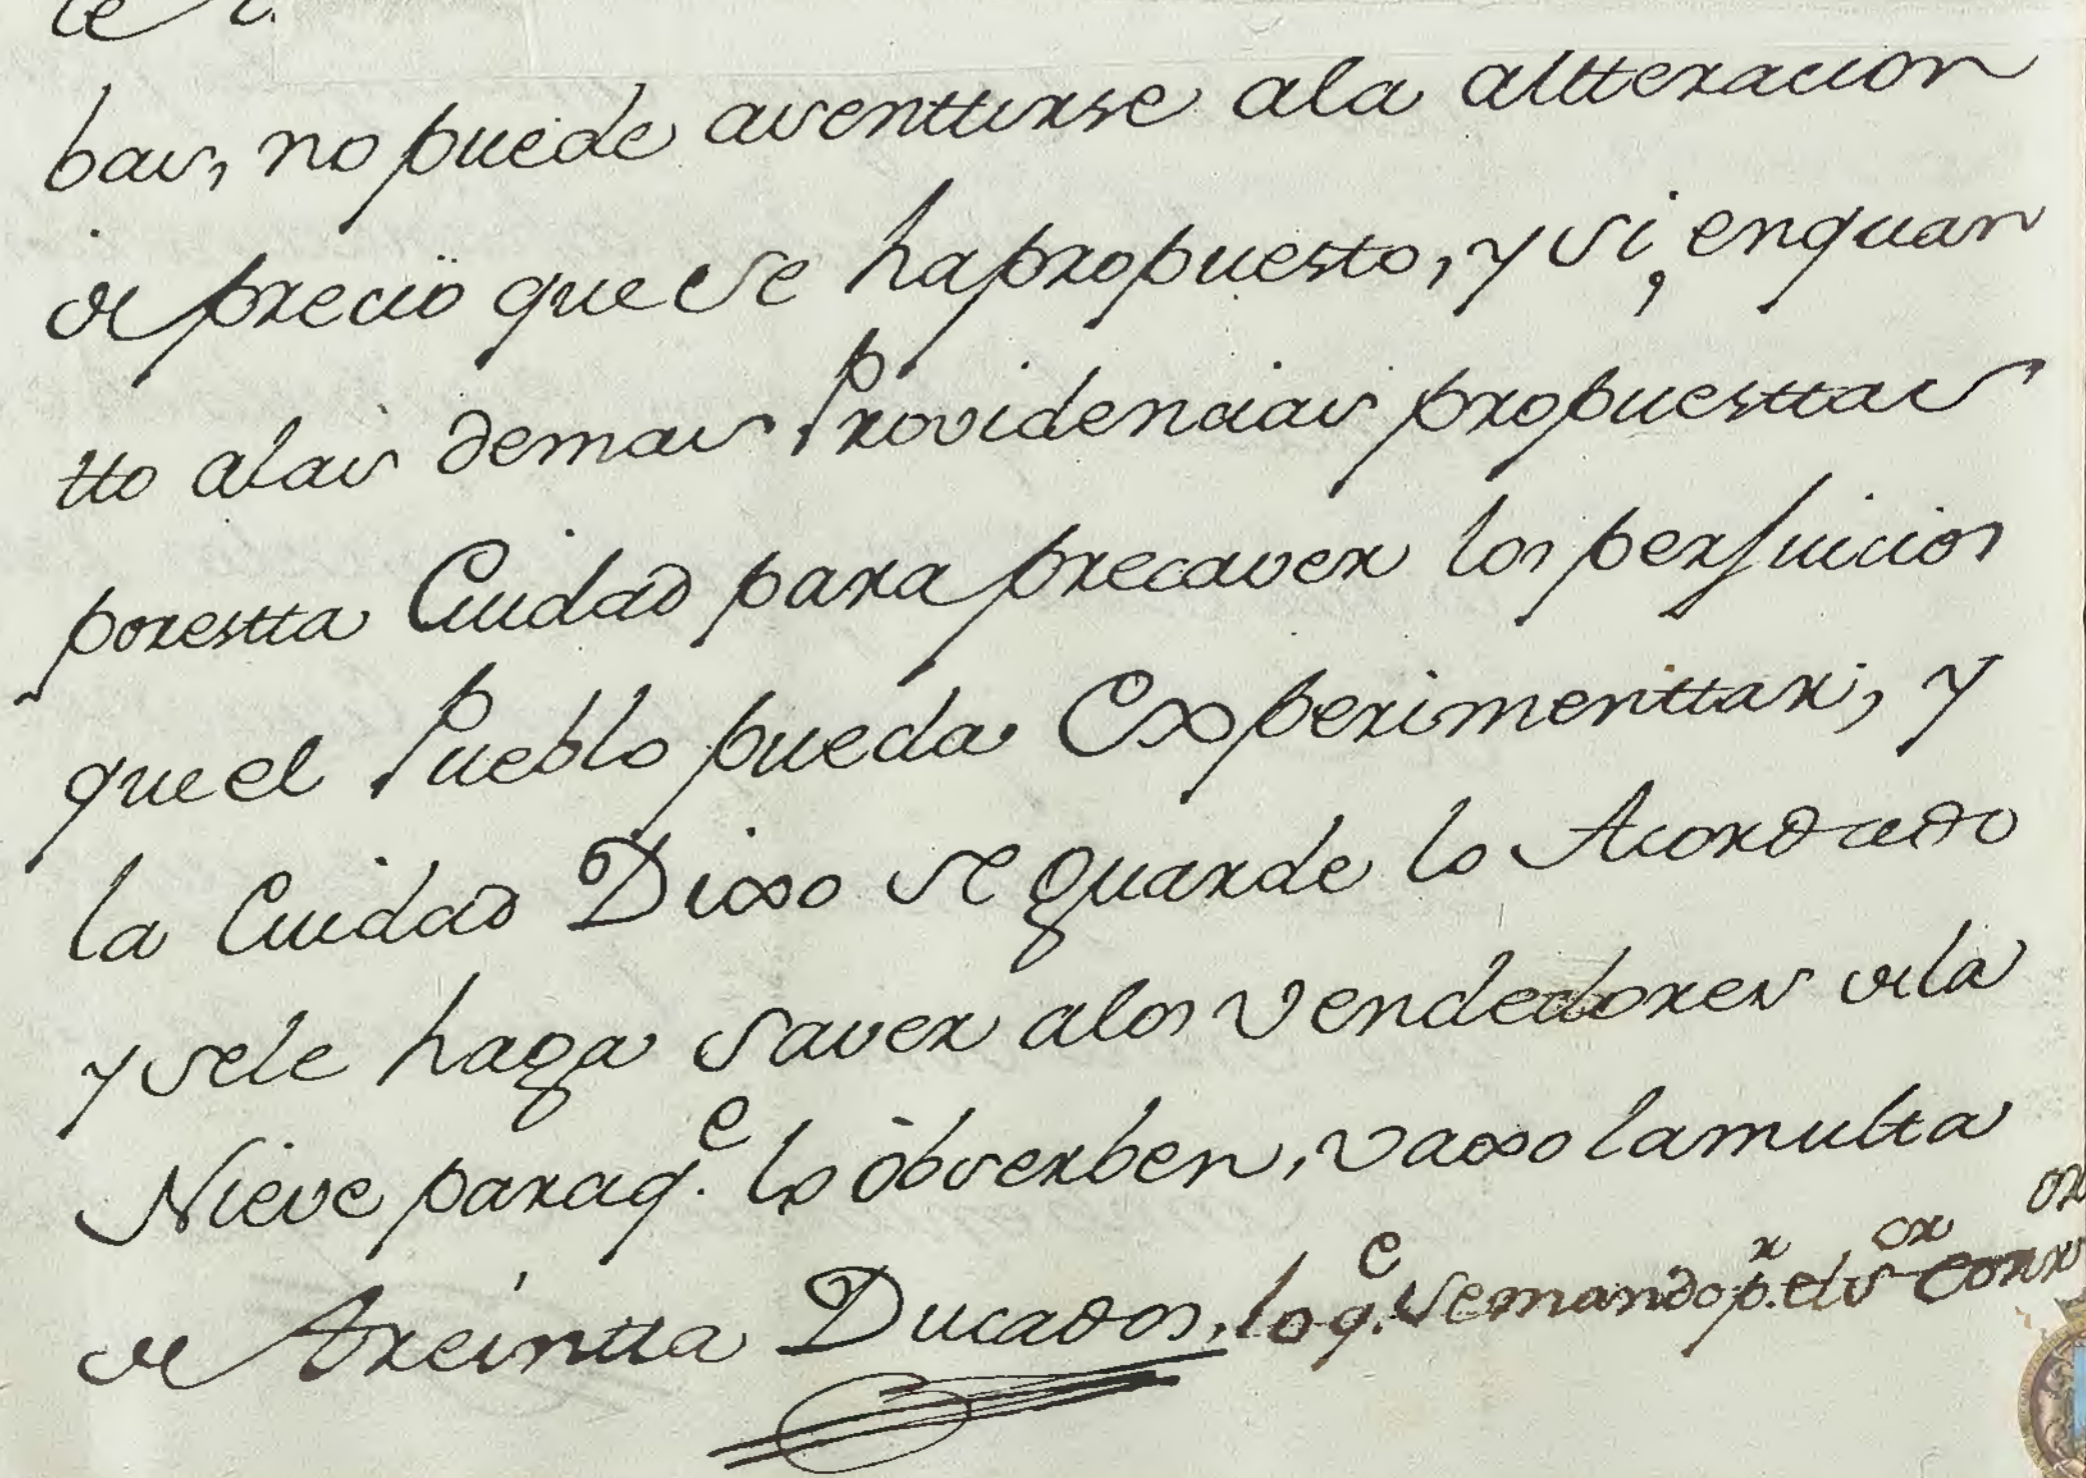 bas, no puede aventturse ala altteracion
de precio que se hapropuesto, y si, enquan
tto alas demas Providencias propuesttas
porestta Ciudad para precaver los perjuicios
que el Pueblo pueda Experimenttar, y
la Ciudad Dixo se guarde lo Acordado
y sele haga saver alos Vendedores dela
Nieve paraq.e lo observen, vaxo lamulta
de treintta Ducados, lo q.e semando p.r el s.or Corr.or